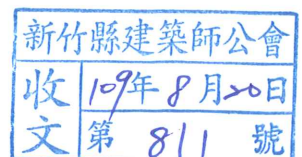 新竹縣建築師公會
收文
109年8月20日
第811號